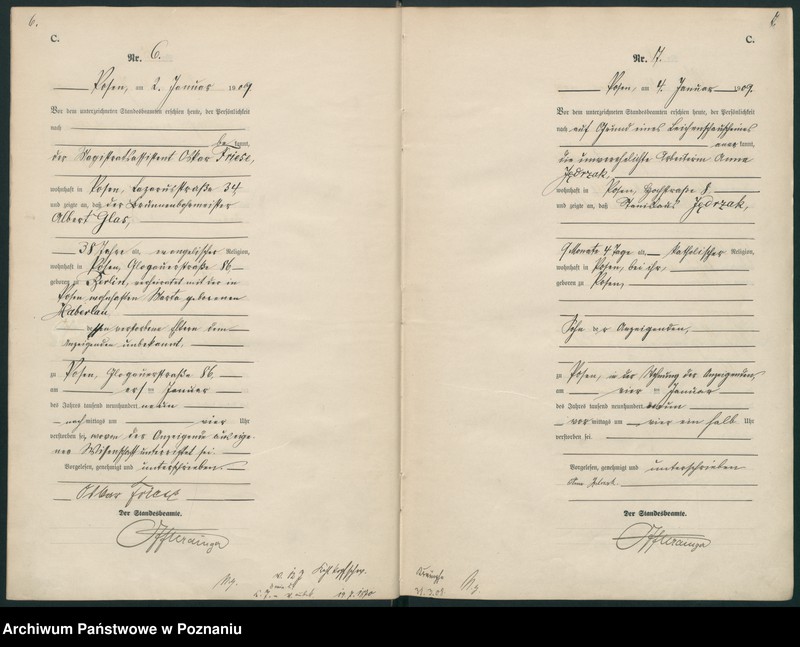 6.
C.
Nr. 6.
Posen, am 2. Januar 1909
Vor dem unterzeichneten Standesbeamten erschien heute, der Persönlichkeit
nach
be kannt,
der Magistratsassistent Oskar Friese,
wohnhaft in Posen, Lazarusstraße 34
und zeigte an, daß der Brunnenbohrmeister
Albert Glas,
38 Jahre alt, evangelischer Religion,
wohnhaft in Posen, Glogauerstraße 86
geboren zu Berlin, verheiratet mit der in
Posen wohnhaften Marta geborenen
Haberlau
verstorbene Eltern dem
Anzeigenden unbekannt,
zu Posen, Glogauerstraße 86,
am ersten Januar
des Jahres tausend neunhundert neun
nachmittags um vier Uhr
verstorben sei, wovon der Anzeigende aus eige-
ner Wissenschaft unterrichtet sei.
Vorgelesen, genehmigt und unterschrieben.
Oskar Friese
Der Standesbeamte.
7.
C.
Nr. 7.
Posen, am 4. Januar 1909.
Vor dem unterzeichneten Standesbeamten erschien heute, der Persönlichkeit
nach auf Grund eines Leichenschauscheines
aner kannt,
die unverehelichte Arbeiterin Anna
Jędrzak,
wohnhaft in Posen, 8
und zeigte an, daß Stanislaus Jędrzak,
9 Monate 4 Tage alt, katholischer Religion,
wohnhaft in Posen, bei ihr,
geboren zu Posen,
Sohn der Anzeigenden,
zu Posen, in der Wohnung der Anzeigenden,
am vier ten Januar
des Jahres tausend neunhundert neun
vormittags um vier ein halb Uhr
verstorben sei.
Vorgelesen, genehmigt und unterschrieben
Der Standesbeamte.
Archiwum Państwowe w Poznaniu